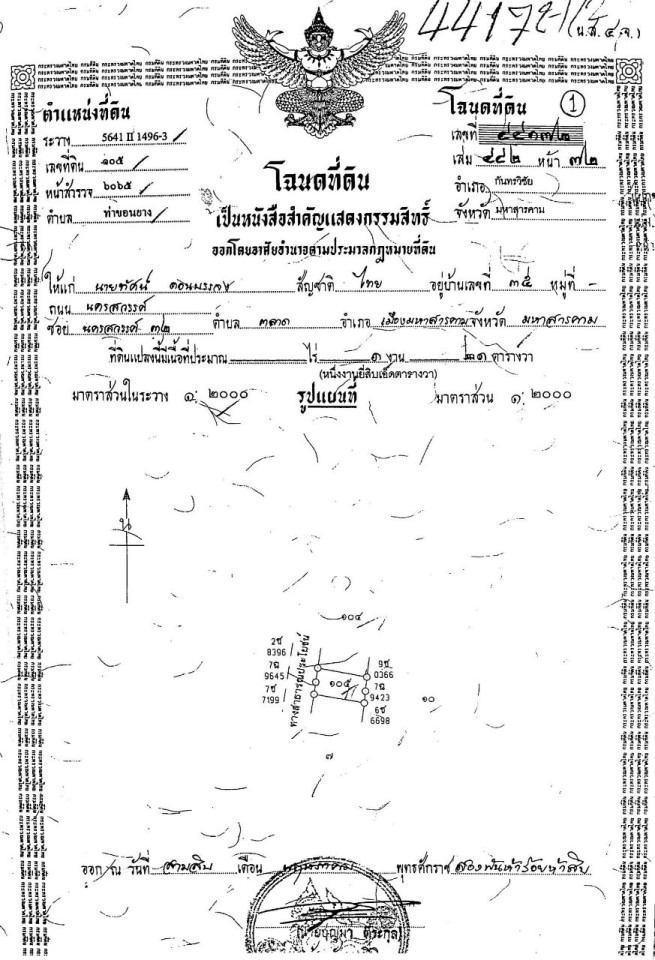 44172
(น.ส. ๔ จ.)
ตำแหน่งที่ดิน
ระวาง 5641 II 1496-3
เลขที่ดิน ๑๐๕
หน้าสำรวจ ๖๐๖๕
ตำบล ท่าขอนยาง
โฉนดที่ดิน
เป็นหนังสือสำคัญแสดงกรรมสิทธิ์
ออกโดยอาศัยอำนาจตามประมวลกฎหมายที่ดิน
โฉนดที่ดิน ①
เลขที่ ๔๔๑๗๒
เล่ม ๔๔๒ หน้า ๗๒
อำเภอ กันทรวิชัย
จังหวัด มหาสารคาม
ให้แก่ นายทัศน์ สัญชาติ ไทย อยู่บ้านเลขที่ ๓๕ หมู่ที่ -
ถนน นครสวรรค์
ซอย นครสวรรค์ ๓๒ ตำบล ตลาด อำเภอ เมืองมหาสารคาม จังหวัด มหาสารคาม
ที่ดินแปลงนี้มีเนื้อที่ประมาณ ไร่ ๑ งาน ๒๑ ตารางวา
(หนึ่งงานยี่สิบเอ็ดตารางวา)
มาตราส่วนในระวาง ๑: ๒๐๐๐ รูปแผนที่ มาตราส่วน ๑: ๒๐๐๐
น
๑๐๔
2ช
8396
7ฌ
9645
7ช
7199
ทางสาธารณประโยชน์
๑๐๕
9ช
0366
7ฌ
9423
6ช
6698
๑๐
๗
ออก ณ วันที่ สามสิบ เดือน พุทธศักราช สองพันห้าร้อยห้าสิบ